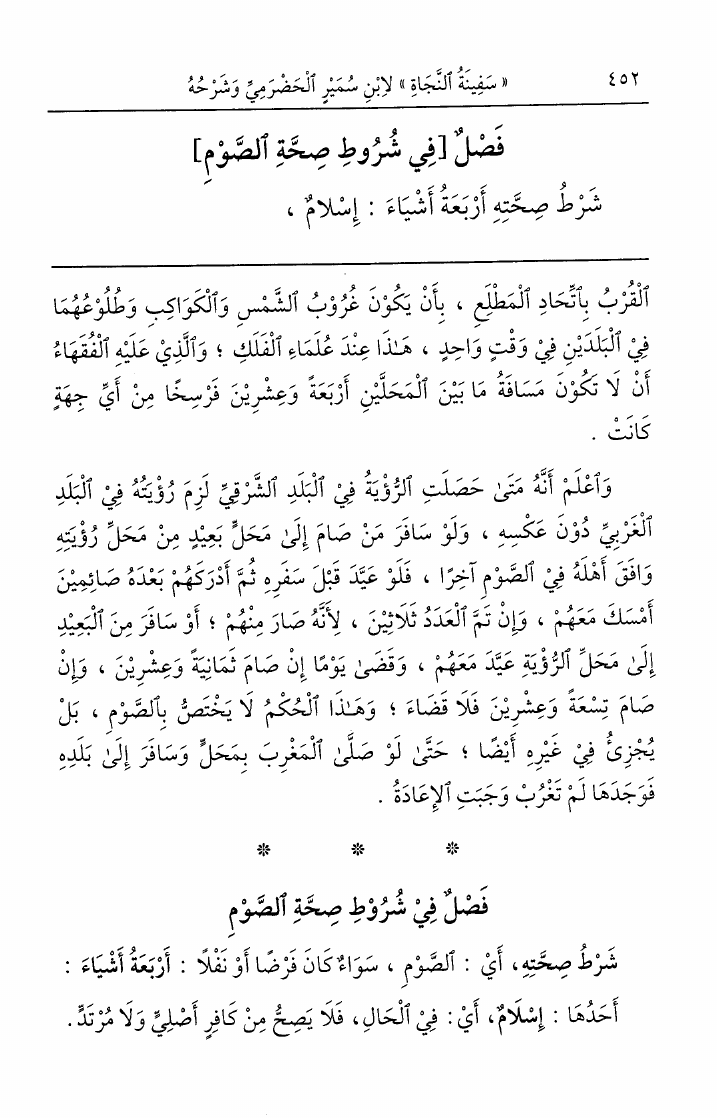 ٤٥٢
« سَفِينَةُ ٱلنَّجَاةِ » لِابْنِ سُمَيْرٍ ٱلْحَضْرَمِيِّ وَشَرْحُهُ
فَصْلٌ [فِي شُرُوطِ صِحَّةِ ٱلصَّوْمِ]
شَرْطُ صِحَّتِهِ أَرْبَعَةُ أَشْيَاءَ : إِسْلَامٌ ،
ٱلْقُرْبُ بِٱتِّحَادِ ٱلْمَطْلَعِ ، بِأَنْ يَكُوْنَ غُرُوْبُ ٱلشَّمْسِ وَٱلْكَوَاكِبِ وَطُلُوْعُهُمَا
فِيْ ٱلْبَلَدَيْنِ فِيْ وَقْتٍ وَاحِدٍ ، هَـٰذَا عِنْدَ عُلَمَاءِ ٱلْفَلَكِ ؛ وَٱلَّذِيْ عَلَيْهِ ٱلْفُقَهَاءُ
أَنْ لَا تَكُوْنَ مَسَافَةُ مَا بَيْنَ ٱلْمَحَلَّيْنِ أَرْبَعَةً وَعِشْرِيْنَ فَرْسَخًا مِنْ أَيِّ جِهَةٍ
كَانَتْ .
وَٱعْلَمْ أَنَّهُ مَتَىٰ حَصَلَتِ ٱلرُّؤْيَةُ فِيْ ٱلْبَلَدِ ٱلشَّرْقِيِّ لَزِمَ رُؤْيَتُهُ فِيْ ٱلْبَلَدِ
ٱلْغَرْبِيِّ دُوْنَ عَكْسِهِ ، وَلَوْ سَافَرَ مَنْ صَامَ إِلَىٰ مَحَلٍّ بَعِيْدٍ مِنْ مَحَلِّ رُؤْيَتِهِ
وَافَقَ أَهْلَهُ فِيْ ٱلصَّوْمِ آخِرًا ، فَلَوْ عَيَّدَ قَبْلَ سَفَرِهِ ثُمَّ أَدْرَكَهُمْ بَعْدَهُ صَائِمِيْنَ
أَمْسَكَ مَعَهُمْ ، وَإِنْ تَمَّ ٱلْعَدَدُ ثَلَاثِيْنَ ، لِأَنَّهُ صَارَ مِنْهُمْ ؛ أَوْ سَافَرَ مِنَ ٱلْبَعِيْدِ
إِلَىٰ مَحَلِّ ٱلرُّؤْيَةِ عَيَّدَ مَعَهُمْ ، وَقَضَىٰ يَوْمًا إِنْ صَامَ ثَمَانِيَةً وَعِشْرِيْنَ ، وَإِنْ
صَامَ تِسْعَةً وَعِشْرِيْنَ فَلَا قَضَاءَ ؛ وَهَـٰذَا ٱلْحُكْمُ لَا يَخْتَصُّ بِٱلصَّوْمِ ، بَلْ
يُجْزِئُ فِيْ غَيْرِهِ أَيْضًا ؛ حَتَّىٰ لَوْ صَلَّىٰ ٱلْمَغْرِبَ بِمَحَلٍّ وَسَافَرَ إِلَىٰ بَلَدِهِ
فَوَجَدَهَا لَمْ تَغْرُبْ وَجَبَتِ ٱلْإِعَادَةُ .
* * *
فَصْلٌ فِيْ شُرُوْطِ صِحَّةِ ٱلصَّوْمِ
شَرْطُ صِحَّتِهِ، أَيْ : ٱلصَّوْمِ ، سَوَاءٌ كَانَ فَرْضًا أَوْ نَفْلًا : أَرْبَعَةُ أَشْيَاءَ :
أَحَدُهَا : إِسْلَامٌ، أَيْ : فِيْ ٱلْحَالِ، فَلَا يَصِحُّ مِنْ كَافِرٍ أَصْلِيٍّ وَلَا مُرْتَدٍّ.